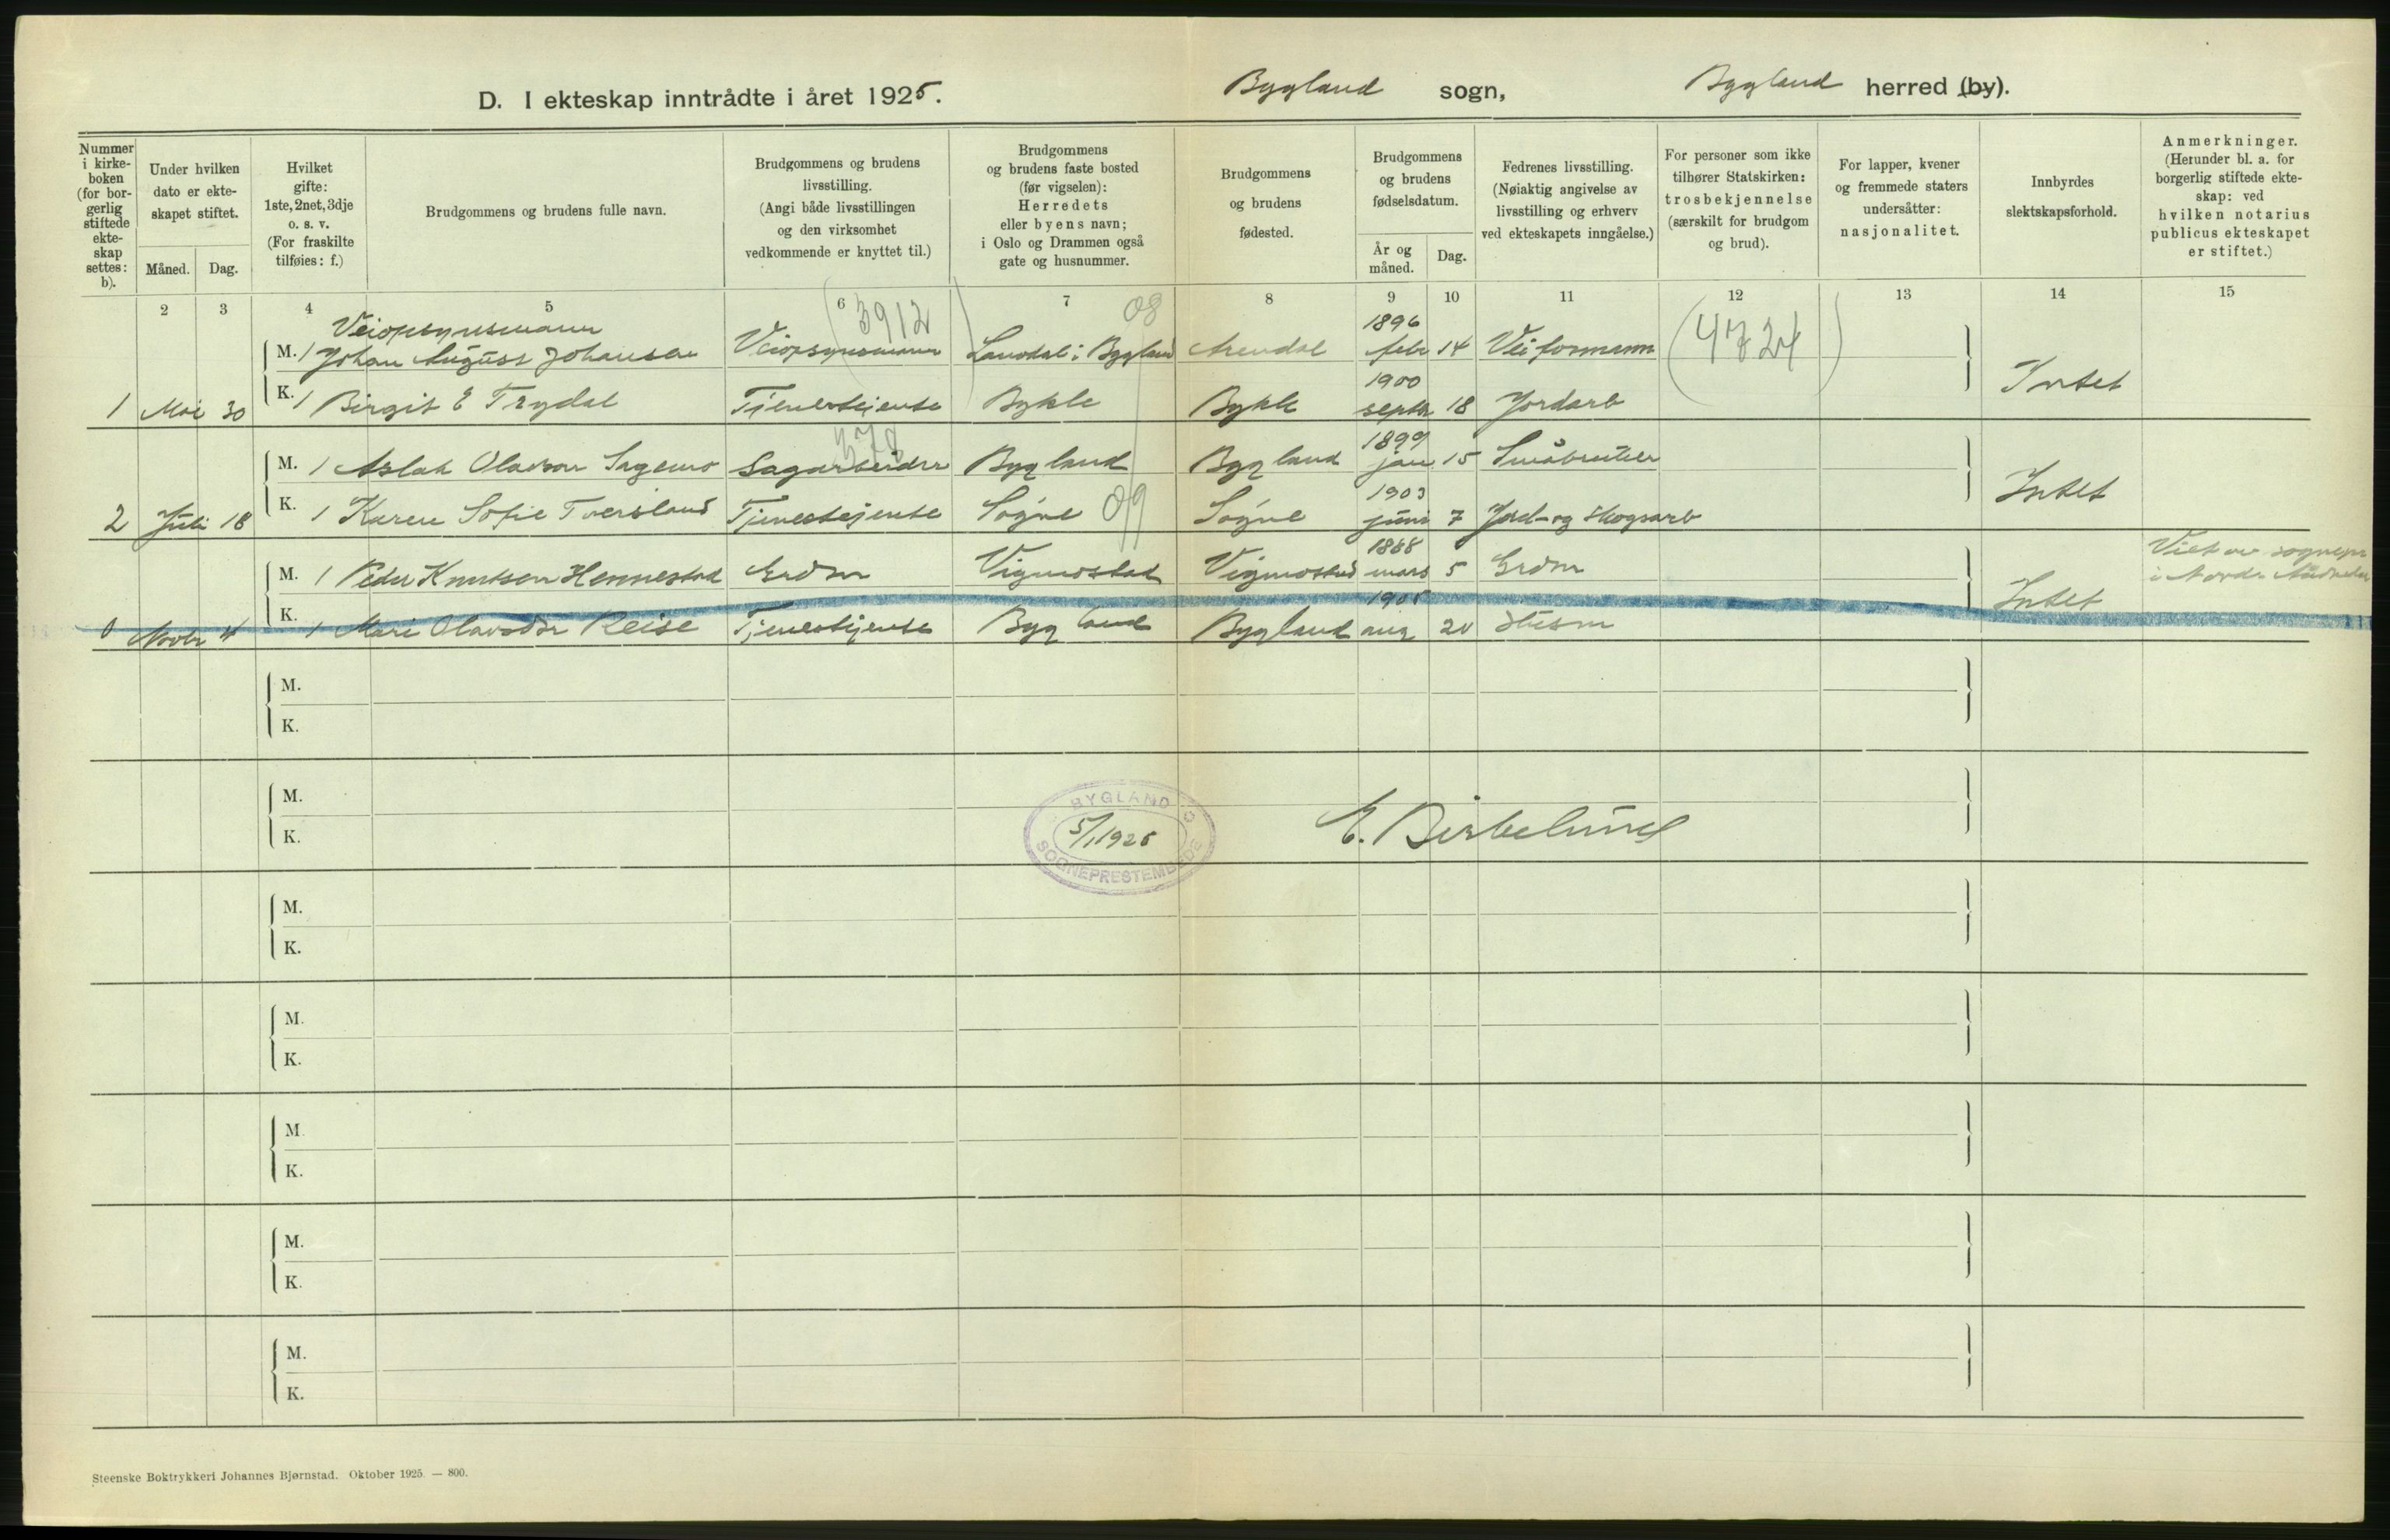 D. I ekteskap inntrådte i året 1925. Bygland sogn, Bygland herred (by).
Nummer i kirke-boken (for bor-gerlig stiftede ekte-skap settes: b).
Under hvilken dato er ekte-skapet stiftet.
Måned. Dag.
Hvilket gifte: 1ste, 2net, 3dje o. s. v. (For fraskilte tilføies: f.)
Brudgommens og brudens fulle navn.
Brudgommens og brudens livsstilling. (Angi både livsstillingen og den virksomhet vedkommende er knyttet til.)
Brudgommens og brudens faste bosted (før vigselen): Herredets eller byens navn; i Oslo og Drammen også gate og husnummer.
Brudgommens og brudens fødested.
Brudgommens og brudens fødselsdatum.
År og måned. Dag.
Fedrenes livsstilling. (Nøiaktig angivelse av livsstilling og erhverv ved ekteskapets inngåelse.)
For personer som ikke tilhører Statskirken: trosbekjennelse (særskilt for brudgom og brud).
For lapper, kvener og fremmede staters undersåtter: nasjonalitet.
Innbyrdes slektskapsforhold.
Anmerkninger. (Herunder bl. a. for borgerlig stiftede ekte-skap: ved hvilken notarius publicus ekteskapet er stiftet.)
2 3 4 5 6 7 8 9 10 11 12 13 14 15
Veiopsynsmann (3912) 08 1896 (4724)
M. 1 Johan August Johansen Veiopsynsmann Landdal i Bygland Arendal febr 14 Veiformann
1900
1 Mai 30 K. 1 Birgit E Trydal Tjenestejente Bykle Bykle septbr 18 Jordarb Intet
378 1899
M. 1 Aslak Olavson Sagemo Sagarbeider Bygland Bygland jan 15 Småbruker
1903
2 Juli 18 K. 1 Karen Sofie Tveisland Tjenestejente Søgne 09 Søgne juni 7 Jord- og skogsarb Intet
1888
M. 1 Peder Knutsen Hennestad Grdbr Vigmostad Vigmostad mars 5 Grdbr Viet av sognepr i Nordr Audnedal
1905
0 Novbr 4 K. 1 Mari Olavsdtr Reise Tjenestejente Bygland Bygland aug 20 Husm Intet
M.
K.
M.
K.
BYGLAND SOGNEPRESTEMBEDE
5/1 1926
E. Birkelund
M.
K.
M.
K.
M.
K.
M.
K.
M.
K.
Steenske Boktrykkeri Johannes Bjørnstad. Oktober 1925. — 800.